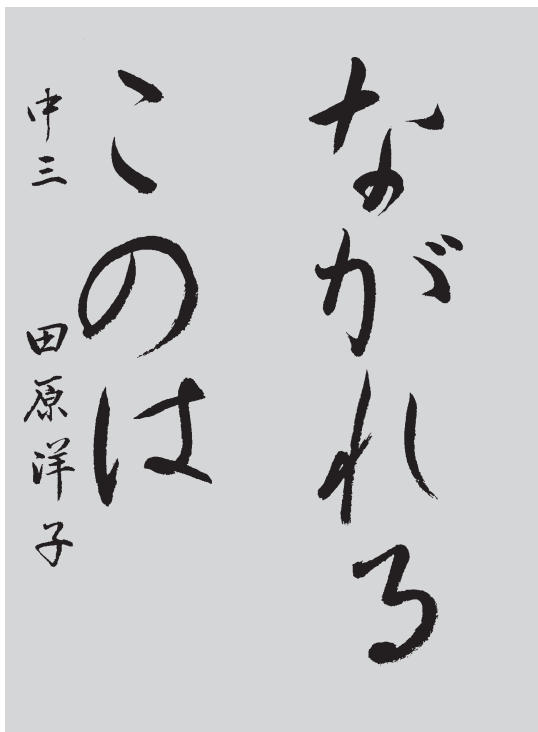 ながれる
このは
中三 田原洋子